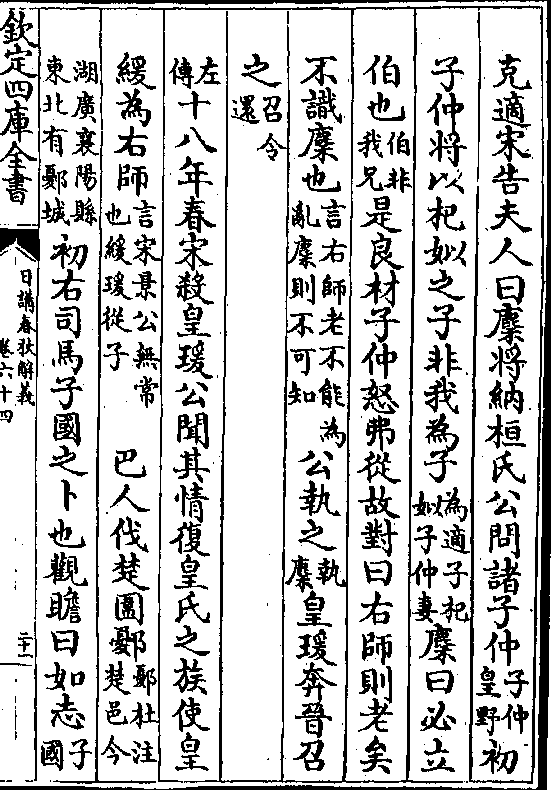 克適宋告夫人曰麇將納桓氏公問諸子仲子仲皇野初
子仲將以杞姒之子非我為子為適子杞姒子仲妻麇曰必立
伯也伯非我兄是良材子仲怒弗從故對曰右師則老矣
不識麇也言右師老不能為亂麇則不可知公執之執麇皇瑗奔晉召
之召令還
左傳十八年春宋殺皇瑗公聞其情復皇氏之族使皇
緩為右師言宋景公無常也緩瑗從子巴人伐楚圍鄾鄾杜注楚邑今
湖廣襄陽縣東北有鄾城初右司馬子國之卜也觀瞻曰如志子國
欽定四庫全書
日講春秋解義
卷六十四
二十一